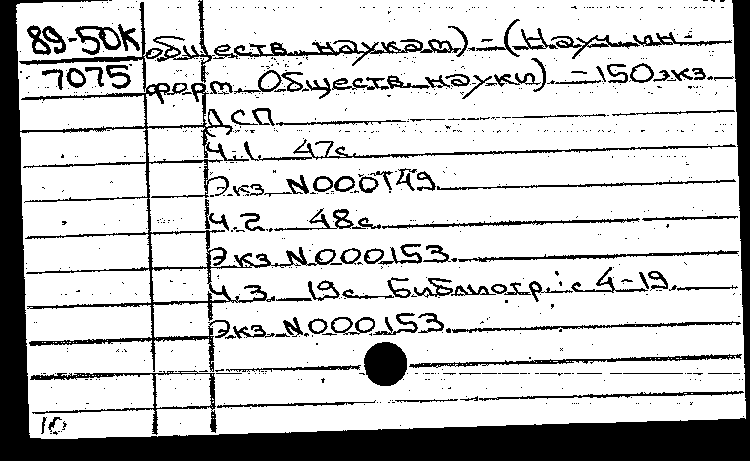 89-50К обществ. наукам) - (Науч. ин-
7075 форм. Обществ. науки). - 150 экз.
ДСП.
Ч.1. 47с.
Экз. N000149.
Ч.2. 48с.
Экз. N000153.
Ч.3. 19с. Библиогр.: с 4-19.
Экз. N000153.
10